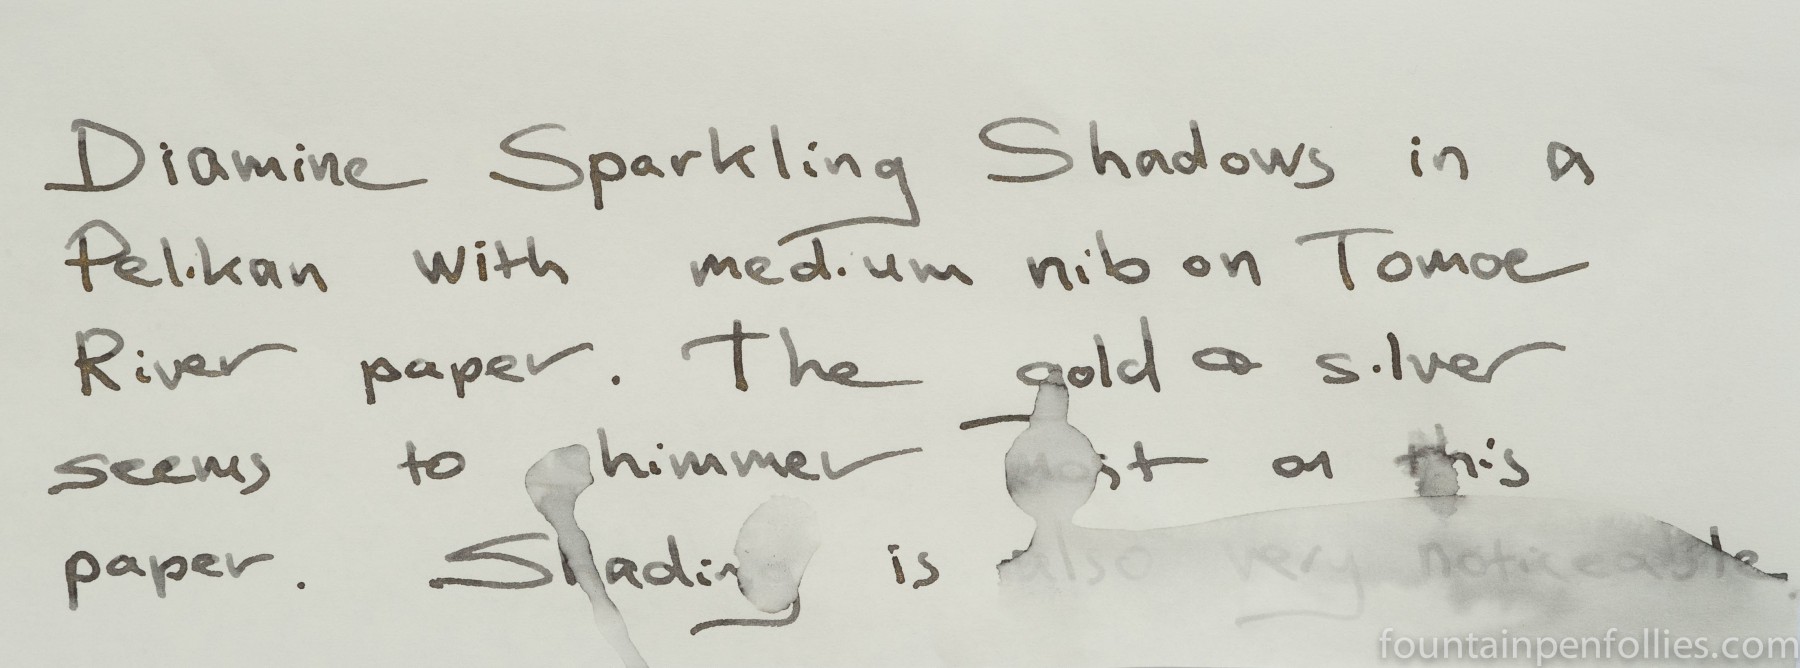 Diamine Sparkling Shadows in a
Pelikan with medium nib on Tomoe
River paper. The gold or silver
seems to shimmer most on this
paper. Shading is also very noticeable.
fountainpenfollies.com